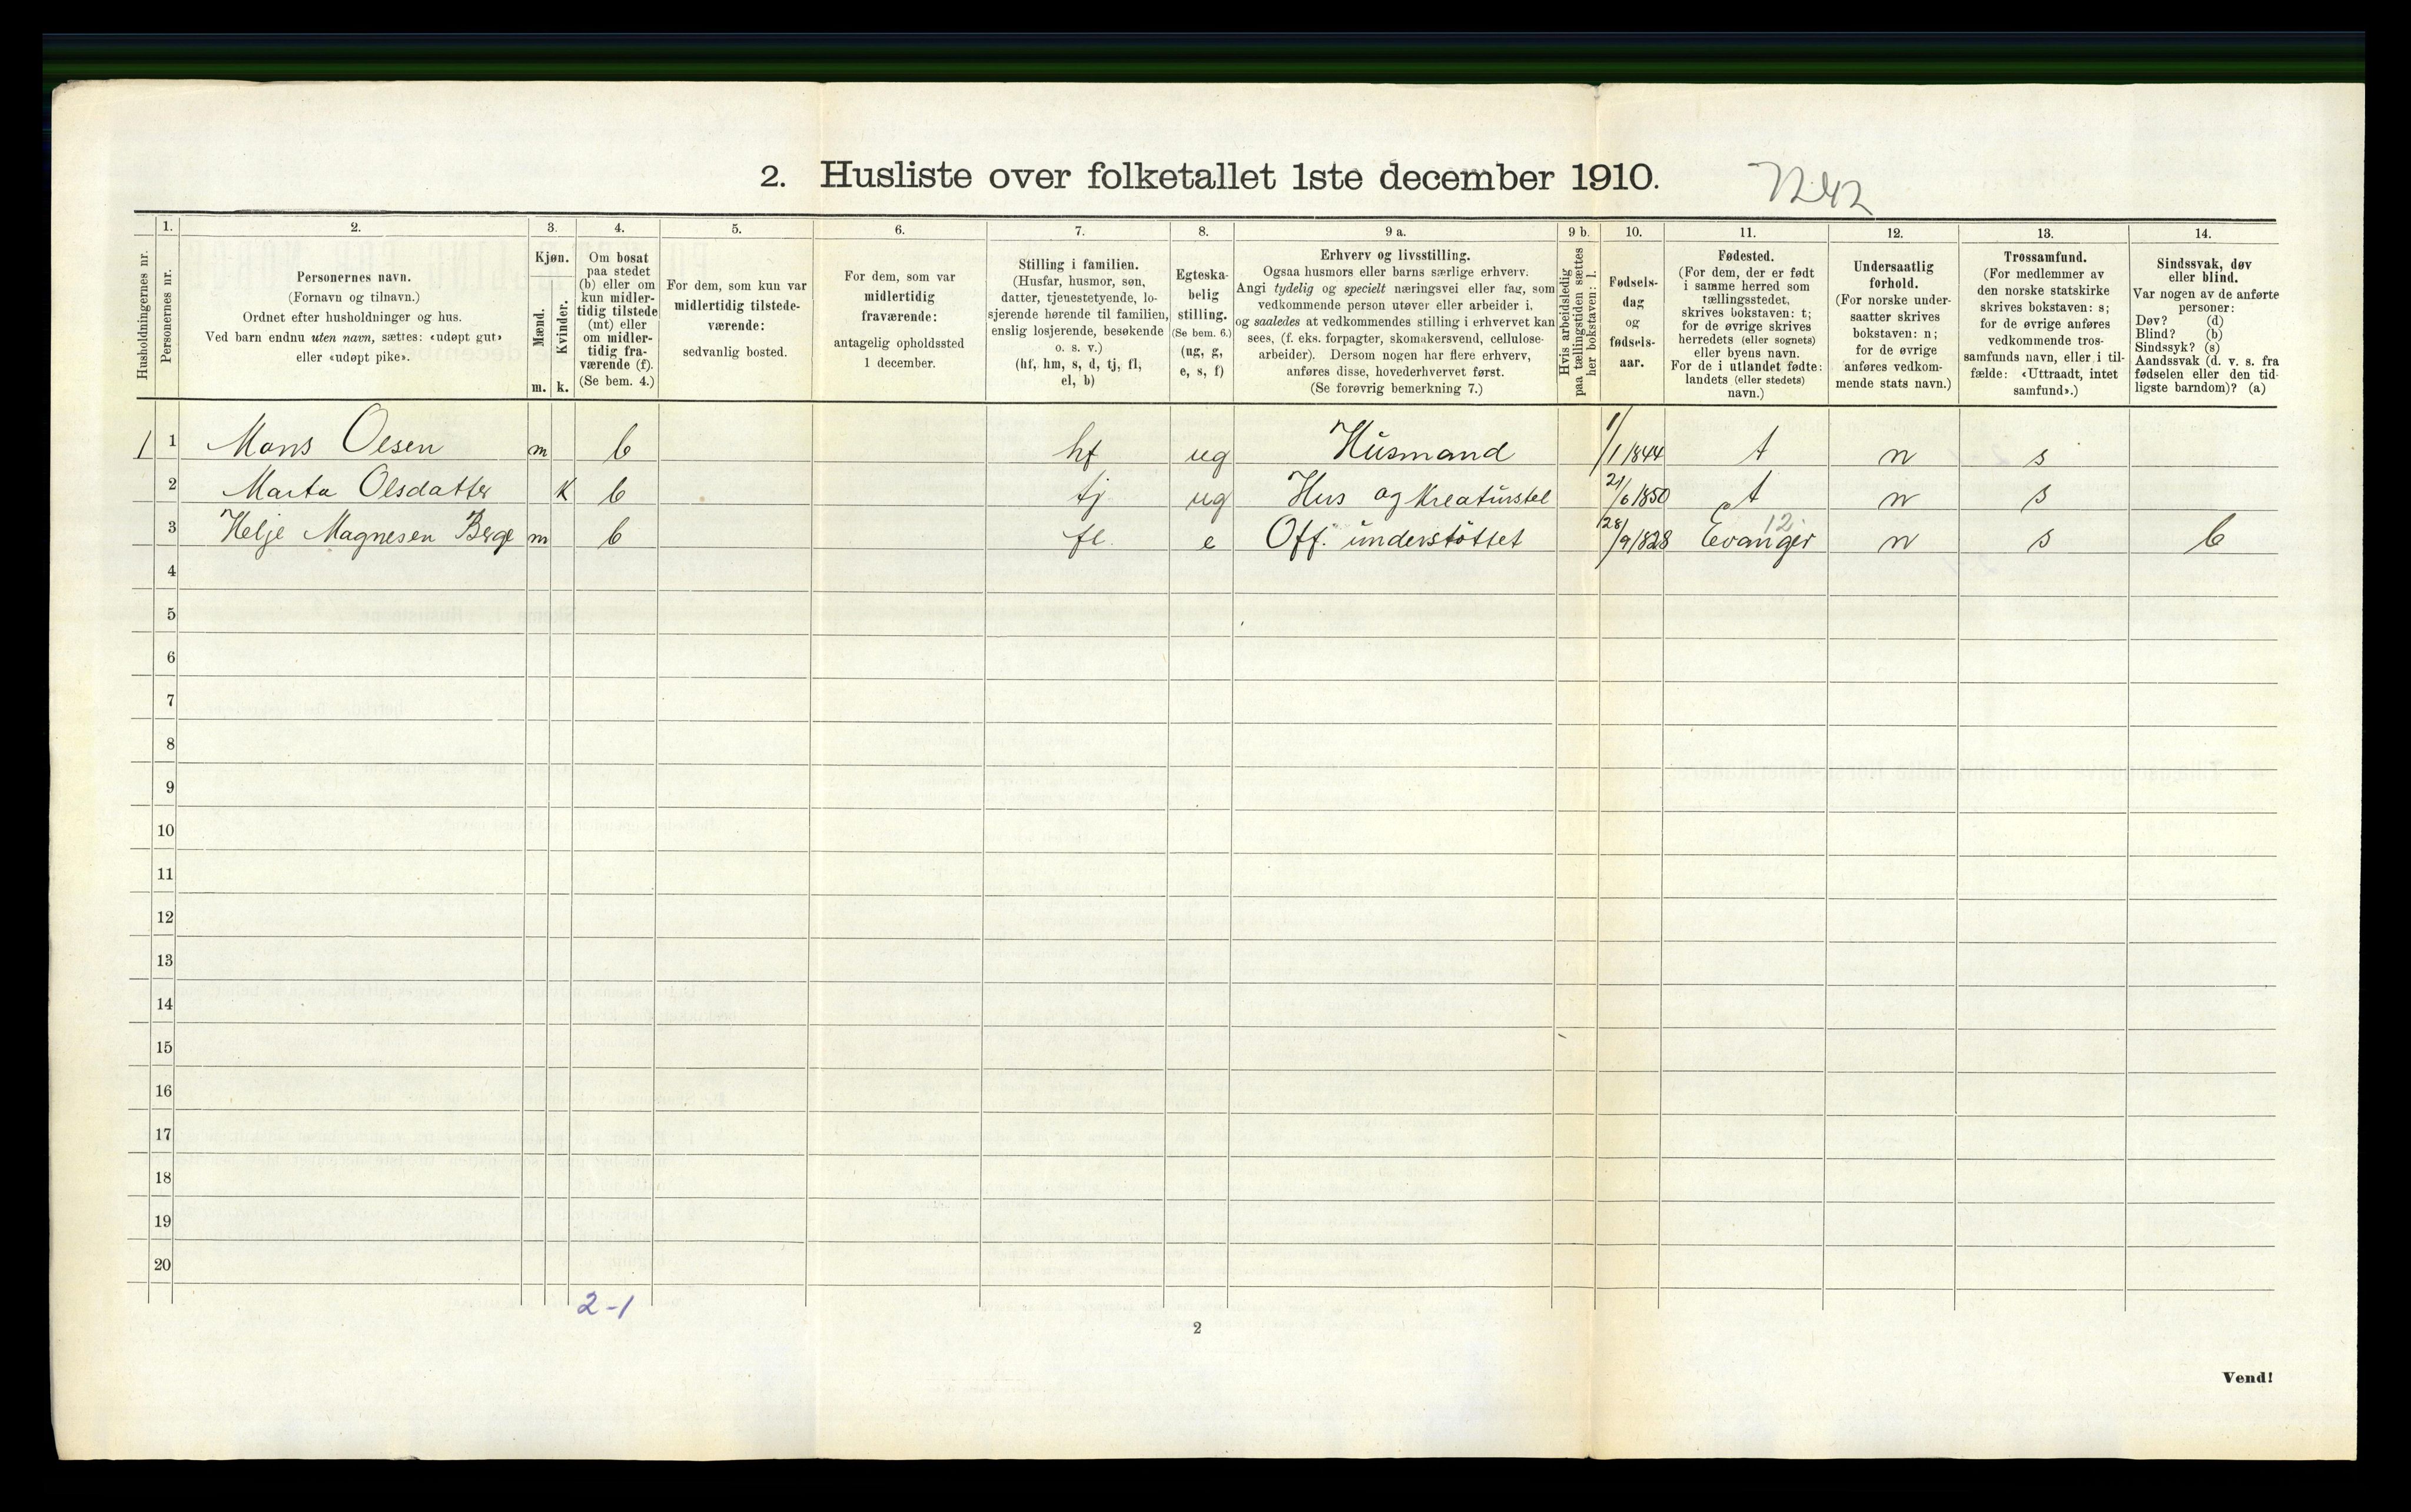 2. Husliste over folketallet 1ste december 1910.
1. 2. 3. 4. 5. 6. 7. 8. 9 a. 9 b. 10. 11. 12. 13. 14.
Husholdningernes nr.
Personernes nr.
Personernes navn.
(Fornavn og tilnavn.)
Ordnet efter husholdninger og hus.
Ved barn endnu uten navn, sættes: «udøpt gut»
eller «udøpt pike».
Kjøn.
Mænd.
Kvinder.
m. k.
Om bosat
paa stedet
(b) eller om
kun midler-
tidig tilstede
(mt) eller
om midler-
tidig fra-
værende (f).
(Se bem. 4.)
For dem, som kun var
midlertidig tilstede-
værende:
sedvanlig bosted.
For dem, som var
midlertidig
fraværende:
antagelig opholdssted
1 december.
Stilling i familien.
(Husfar, husmor, søn,
datter, tjenestetyende, lo-
sjerende hørende til familien,
enslig losjerende, besøkende
o. s. v.)
(hf, hm, s, d, tj, fl,
el, b)
Egteska-
belig
stilling.
(Se bem. 6.)
(ug, g,
e, s, f)
Erhverv og livsstilling.
Ogsaa husmors eller barns særlige erhverv.
Angi tydelig og specielt næringsvei eller fag, som
vedkommende person utøver eller arbeider i,
og saaledes at vedkommendes stilling i erhvervet kan
sees, (f. eks. forpagter, skomakersvend, cellulose-
arbeider). Dersom nogen har flere erhverv,
anføres disse, hovederhvervet først.
(Se forøvrig bemerkning 7.)
Hvis arbeidsledig
paa tællingstiden sættes
her bokstaven: l.
Fødsels-
dag
og
fødsels-
aar.
Fødested.
(For dem, der er født
i samme herred som
tællingsstedet,
skrives bokstaven: t;
for de øvrige skrives
herredets (eller sognets)
eller byens navn.
For de i utlandet fødte:
landets (eller stedets)
navn.)
Undersaatlig
forhold.
(For norske under-
saatter skrives
bokstaven: n;
for de øvrige
anføres vedkom-
mende stats navn.)
Trossamfund.
(For medlemmer av
den norske statskirke
skrives bokstaven: s;
for de øvrige anføres
vedkommende tros-
samfunds navn, eller i til-
fælde: «Uttraadt, intet
samfund».)
Sindssvak, døv
eller blind.
Var nogen av de anførte
personer:
Døv? (d)
Blind? (b)
Sindssyk? (s)
Aandssvak (d. v. s. fra
fødselen eller den tid-
ligste barndom)? (a)
1 1 Mons Olsen m b hf ug Husmand 1/1 1844 t n s
2 Marta Olsdatter K b tj ug Hus og Kreaturstel 21/6 1850 t n s
12
3 Helje Magnesen Berge m b fl. e Off. understöttet 28/9 1828 Evanger n s b
4
5
6
7
8
9
10
11
12
13
14
15
16
17
18
19
20
2-1
2
Vend!